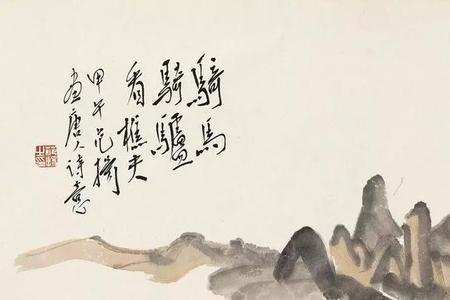 騎馬
騎驢
看樵夫
甲午范揚
畫唐人詩意